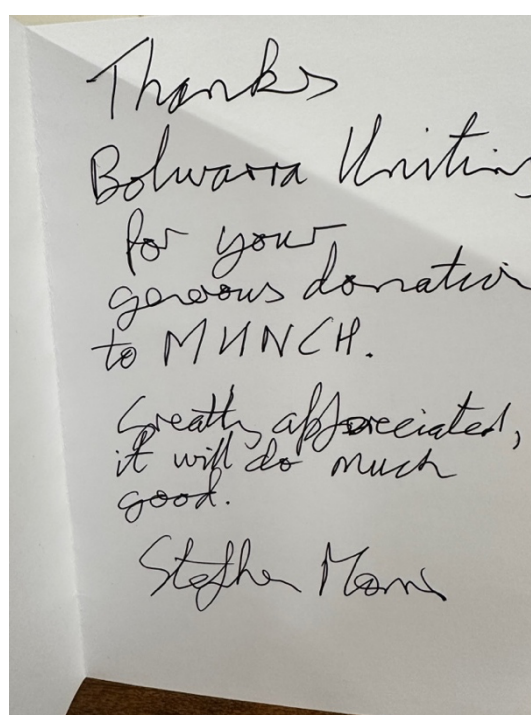 Thanks
Bolwarra Uniting
for your
generous donation
to MUNCH.
Greatly appreciated,
it will do much
good.
Stephen Morris